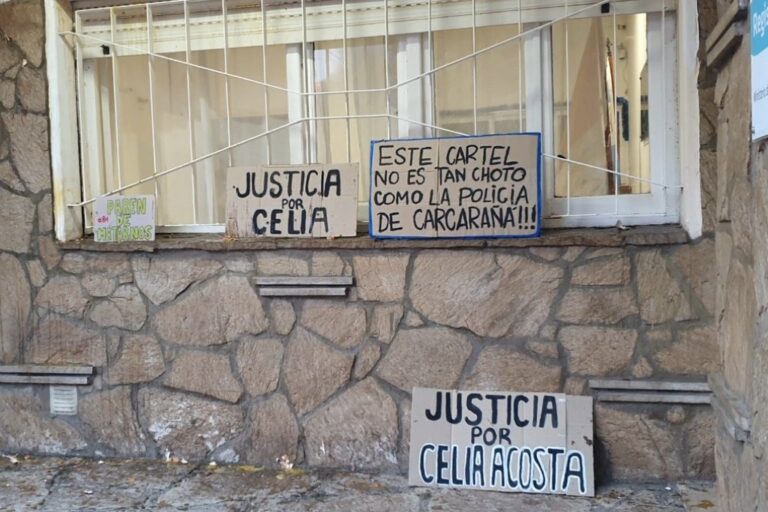 PAREN
DE
MATARNOS
#8M
JUSTICIA
POR
CELIA
ESTE CARTEL
NO ES TAN CHOTO
COMO LA POLICIA
DE CARCARAÑA!!!
JUSTICIA
POR
CELIA ACOSTA